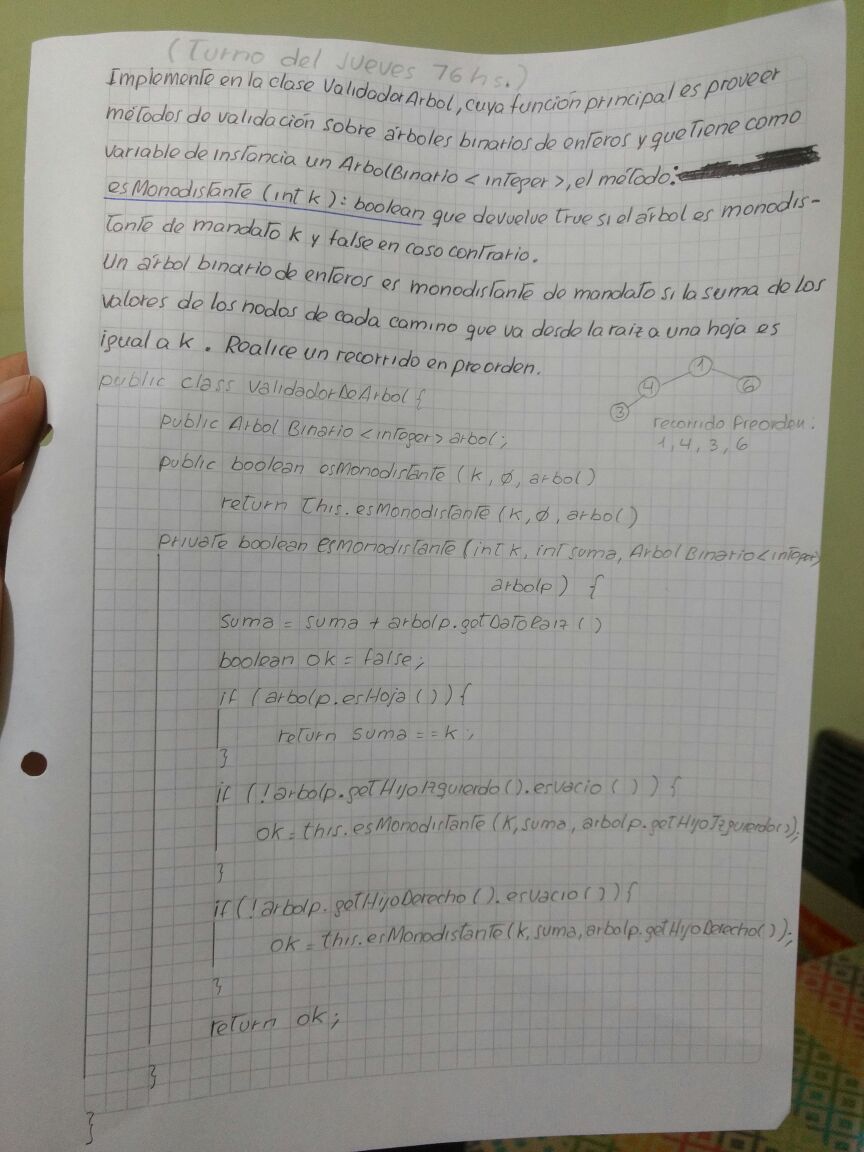 (Turno del jueves 16hs.)
Implemente en la clase ValidadorArbol, cuya función principal es proveer
métodos de validación sobre árboles binarios de enteros y que tiene como
variable de instancia un ArbolBinario <integer>, el método:
esMonodistante (int k): boolean que devuelve true si el árbol es monodis-
tante de mandato k y false en caso contrario.
Un árbol binario de enteros es monodistante de mandato si la suma de los
valores de los nodos de cada camino que va desde la raíz a una hoja es
igual a k. Realice un recorrido en preorden.
1
4
6
3
recorrido Preorden:
1, 4, 3, 6
public class ValidadorDeArbol {
public Arbol Binario <integer> arbol;
public boolean esMonodistante (k, ø, arbol)
return this.esMonodistante (k, ø, arbol)
private boolean esMonodistante (int k, int suma, Arbol Binario <integer>
arbolp) {
suma = suma + arbolp.getDatoRaiz ()
boolean ok = false;
if (arbolp.esHoja ()) {
return suma == k;
}
if (!arbolp.getHijoIzquierdo().esvacio ()) {
ok = this.esMonodistante (k, suma, arbolp.getHijoIzquierdo());
}
if (!arbolp.getHijoDerecho().esvacio ()) {
ok = this.esMonodistante (k, suma, arbolp.getHijoDerecho());
}
return ok;
}
}